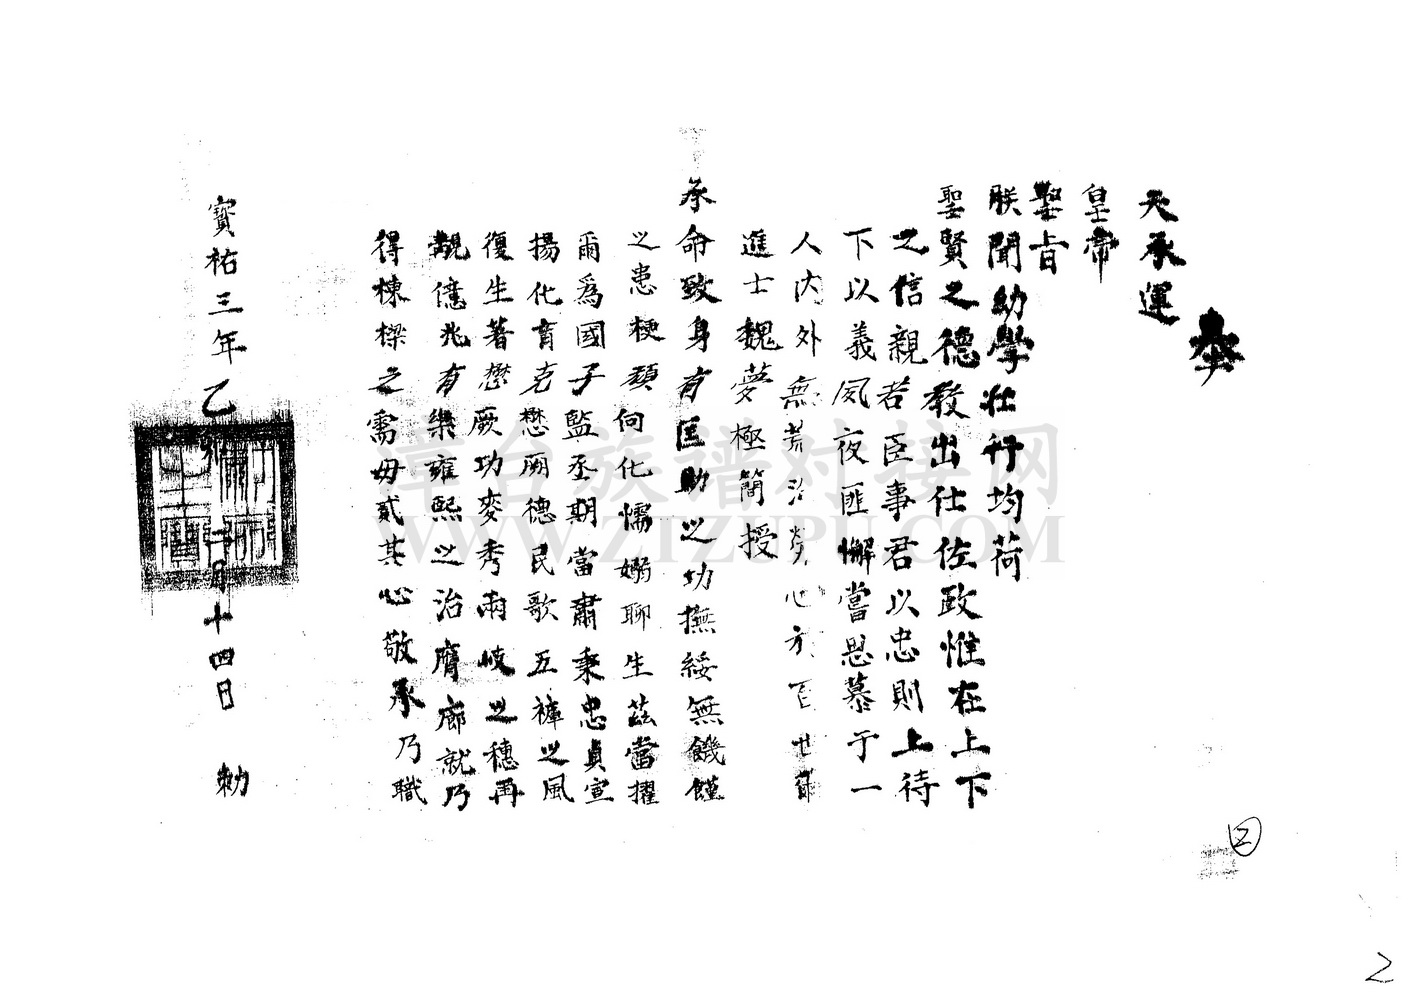 奉
天承運
皇帝
聖旨
朕聞幼學壯行均荷
聖賢之德教出仕佐政惟在上下
之信親若臣事君以忠則上待
下以義夙夜匪懈當思慕于一
人內外無荒治 心方百世
進士魏夢極簡授
承命致身有匡勛之功撫綏無饑饉
之患梗頑向化懦嫋聊生茲當擢
爾為國子監丞期當肅秉忠貞宣
揚化育克懋厥德民歌五褲之風
復生著懋厥功麥秀兩岐之穗再
覩億兆有樂雍熙之治膺廊就乃
得棟樑之需毋貳其心敬承乃職
寶祐三年乙卯二月十四日 勅
漳台族谱对接网
WWW.ZTZUPU.COM
2
2